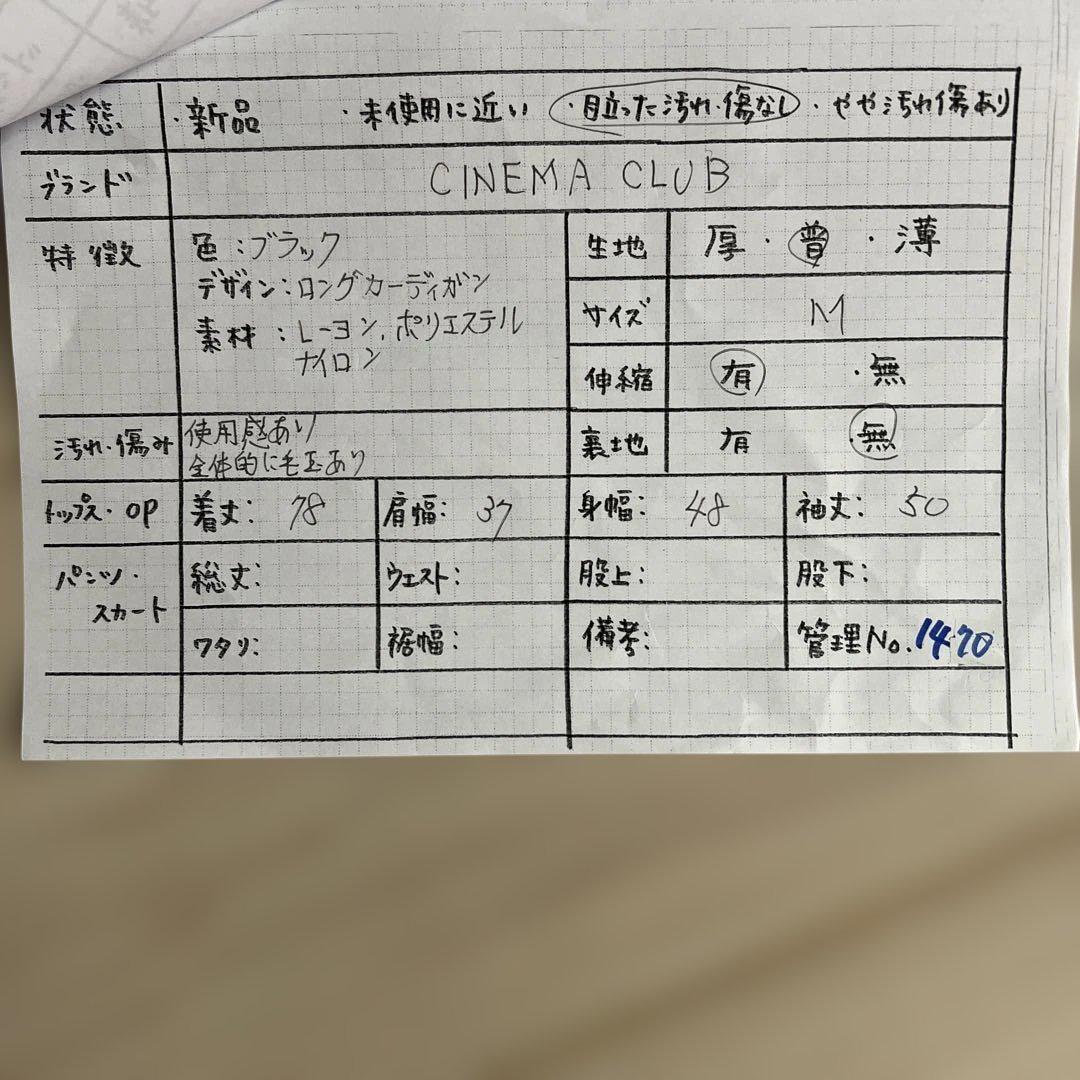 状態 ・新品 ・未使用に近い ・目立った汚れ・傷なし ・やや汚れ傷あり
ブランド CINEMA CLUB
特徴 色：ブラック
デザイン：ロングカーディガン
素材：レーヨン、ポリエステル
ナイロン
生地 厚・普・薄
サイズ M
伸縮 有 ・無
裏地 有 ・無
汚れ・傷み 使用感あり
全体的に毛玉あり
トップス・OP 着丈：78 肩幅：37 身幅：48 袖丈：50
パンツ・
スカート
総丈： ウエスト： 股上： 股下：
ワタリ： 裾幅： 備考： 管理No.1470